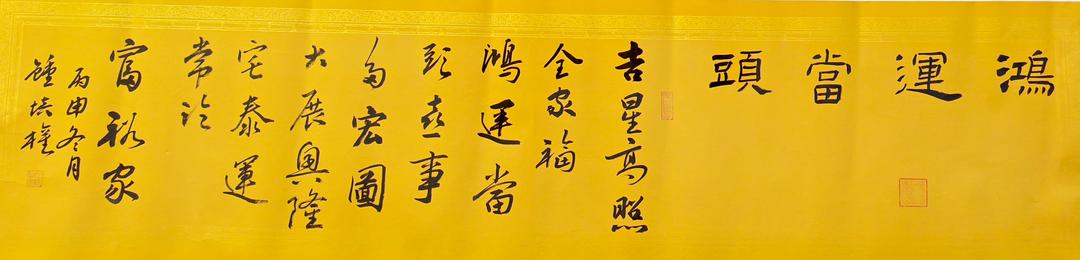 鴻運當頭
吉星高照
全家福
鴻運當
頭喜事
多宏圖
大展興隆
宅泰運
常臨
富裕家
丙申冬月
鍾培權